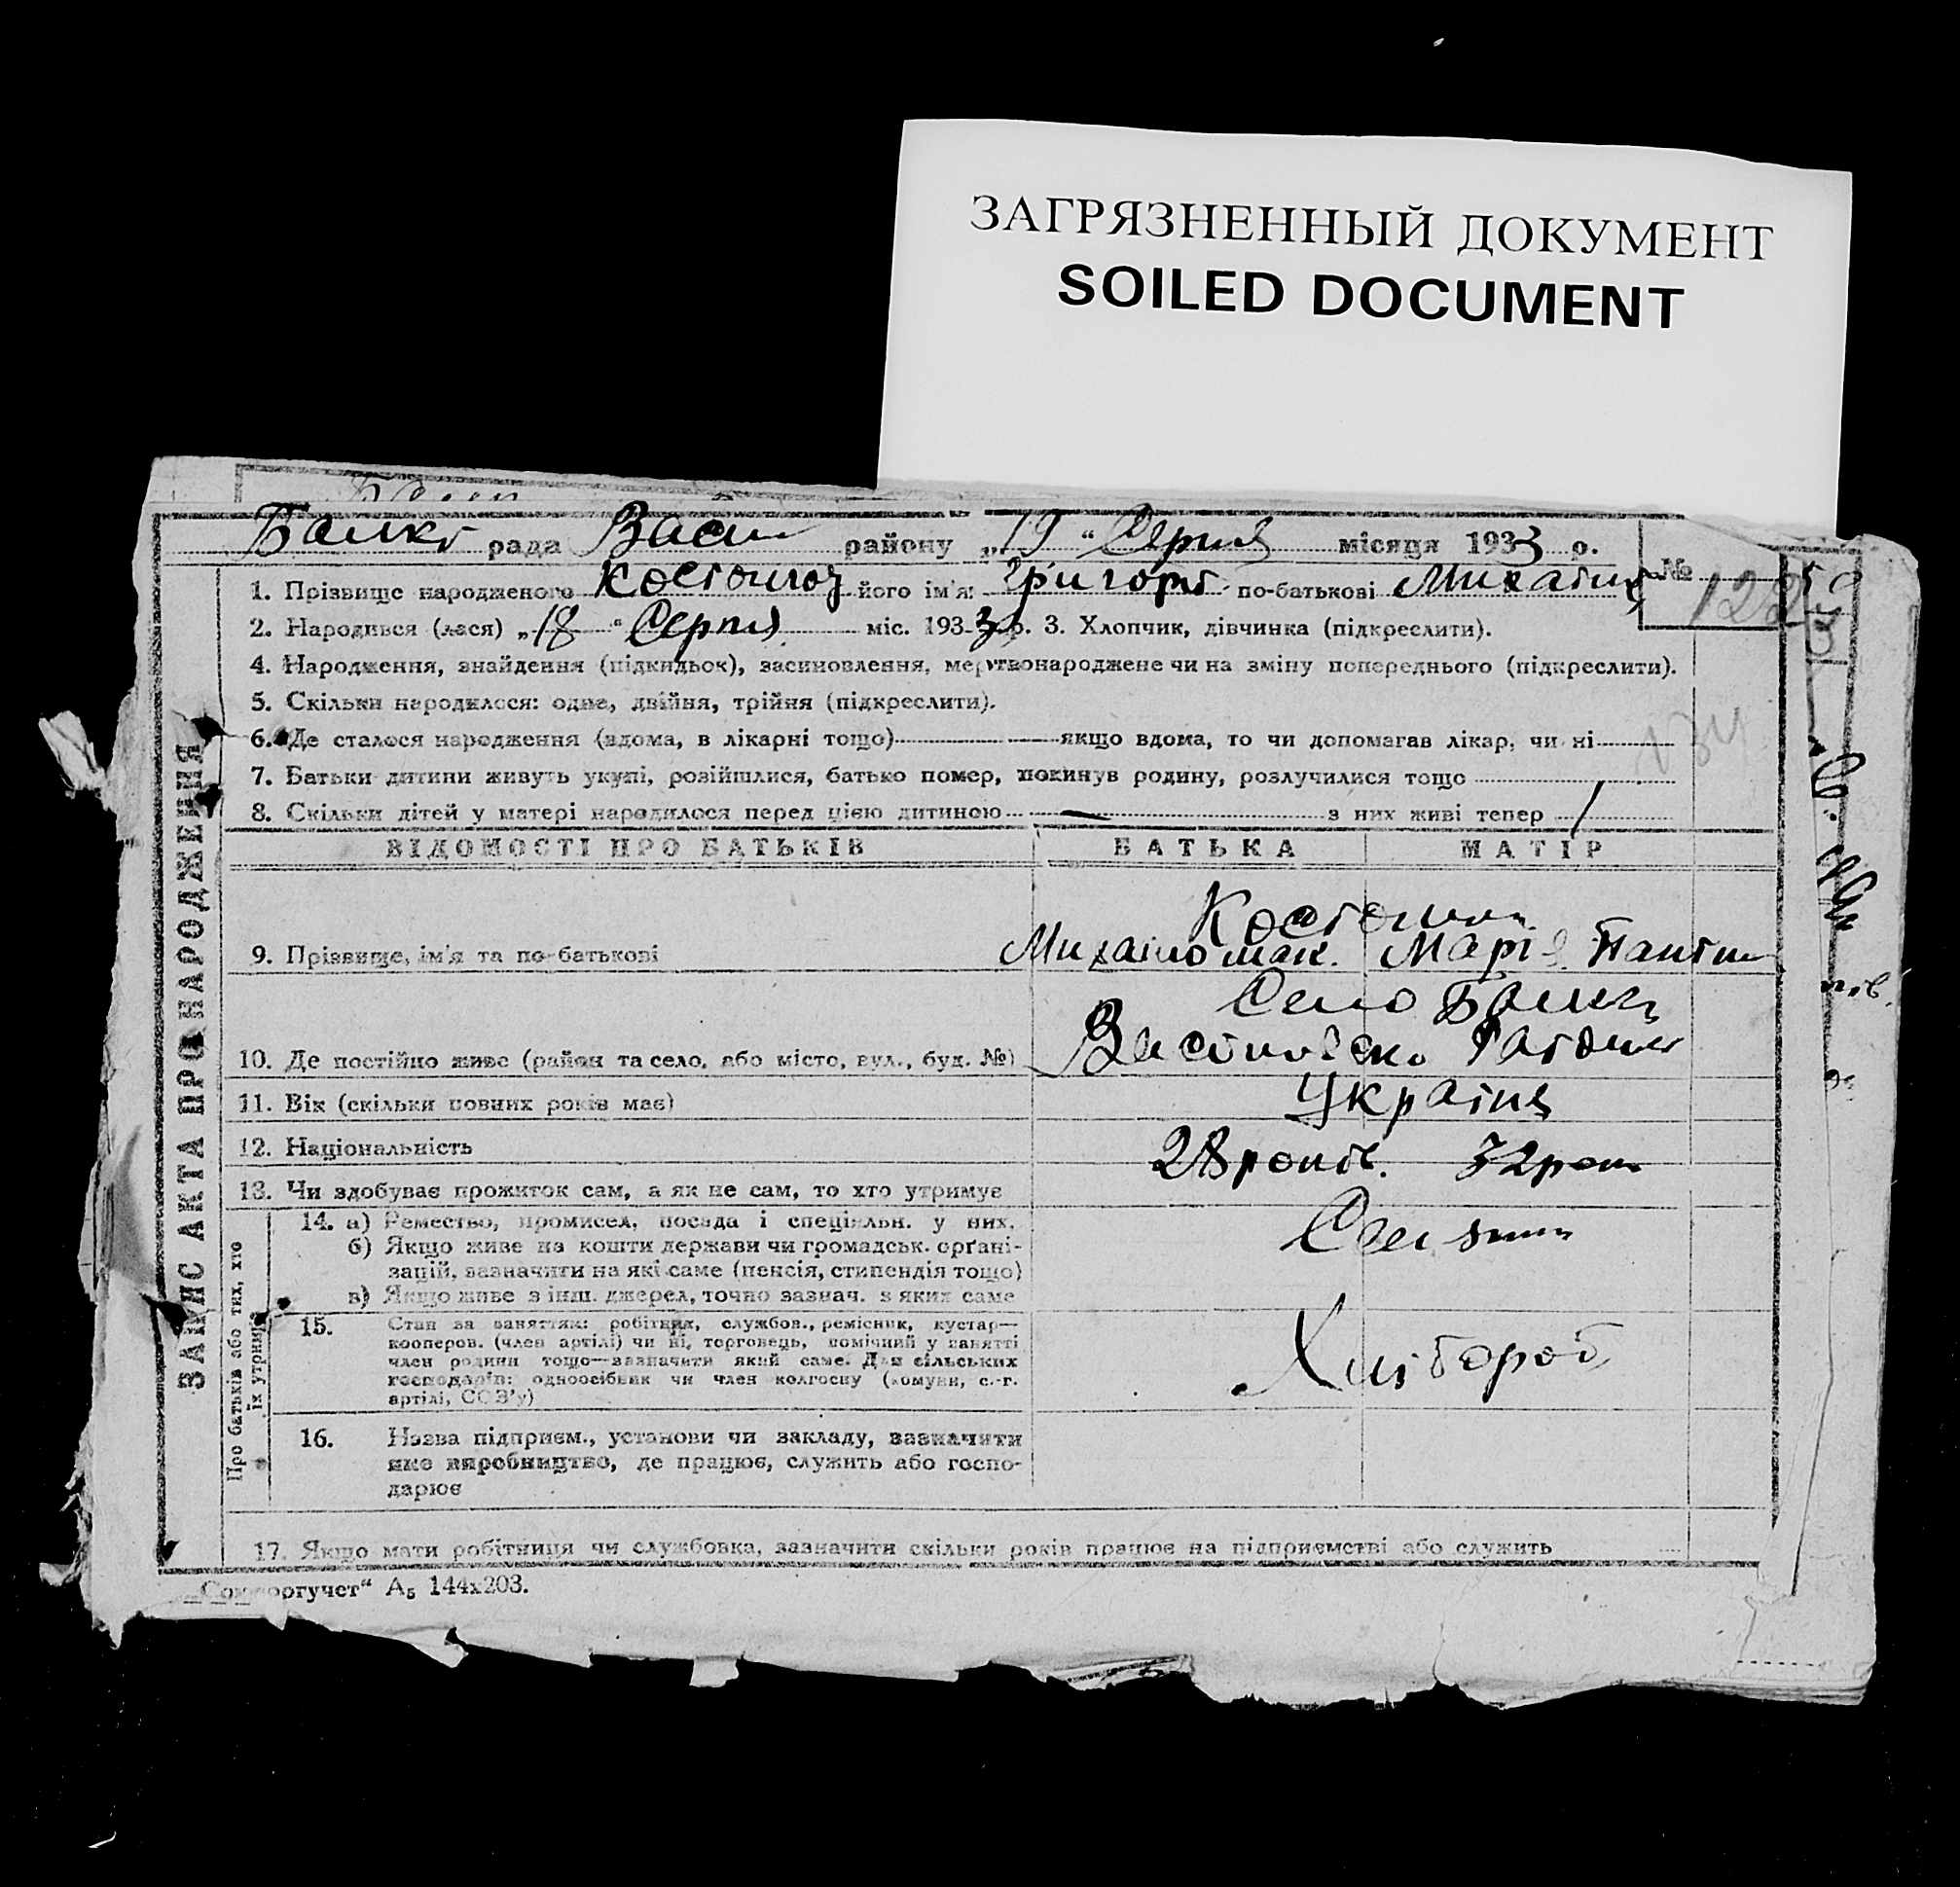 ЗАГРЯЗНЕННЫЙ ДОКУМЕНТ
SOILED DOCUMENT
рада Васи району „19“ Серпня місяця 1933 р.
№ 122
1. Прізвище народженого його ім'я: Григорі по-батькові
2. Народився (лася) „18“ Серпня міс. 1933 р. 3. Хлопчик, дівчинка (підкреслити).
4. Народження, знайдення (підкидьок), засиновлення, мертвонароджене чи на зміну попереднього (підкреслити).
5. Скільки народилося: одне, двійня, трійня (підкреслити).
6. Де сталося народження (вдома, в лікарні тощо) якщо вдома, то чи допомагав лікар, чи ні
7. Батьки дитини живуть укупі, розійшлися, батько помер, покинув родину, розлучилися тощо
8. Скільки дітей у матері народилося перед цією дитиною — з них живі тепер /
ЗАПИС АКТА ПРО НАРОДЖЕННЯ
ВІДОМОСТІ ПРО БАТЬКІВ БАТЬКА МАТІР
9. Прізвище, ім'я та по-батькові Марія
Село
10. Де постійно живе (район та село, або місто, вул., буд. №)
11. Вік (скільки повних років має)
12. Національність
13. Чи здобуває прожиток сам, а як не сам, то хто утримує
Про батьків або тих, хто їх утримує
14. а) Ремество, промисел, посада і спеціяльн. у них.
б) Якщо живе на кошти держави чи громадськ. орґані-
зацій, зазначити на які саме (пенсія, стипендія тощо)
в) Якщо живе з інш. джерел, точно зазнач. з яких саме
15. Стан за заняттям: робітник, службов., ремісник, кустар—
кооперов. (член артілі) чи ні, торговець, помічний у занятті
член родини тощо—зазначити який саме. Для сільських
господарів: одноосібник чи член колгоспу (комуни, с.-г.
артілі, СОЗ'у)
Хлібороб
16. Назва підприєм., установи чи закладу, зазначити
яке виробництво, де працює, служить або госпо-
дарює
17. Якщо мати робітниця чи службовка, зазначити скільки років працює на підприємстві або служить
А₅ 144х203.